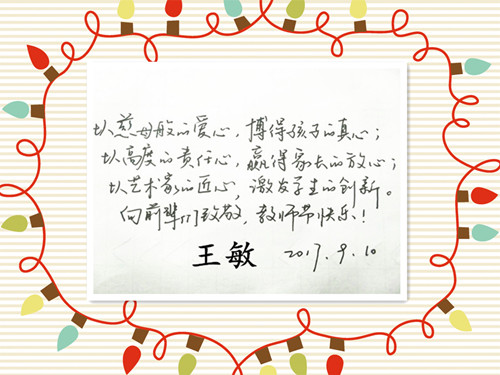 以慈母般的爱心，博得孩子的真心；
以高度的责任心，赢得家长的放心；
以艺术家的匠心，激发学生的创新。
向前辈们致敬，教师节快乐！
王敏 2017.9.10